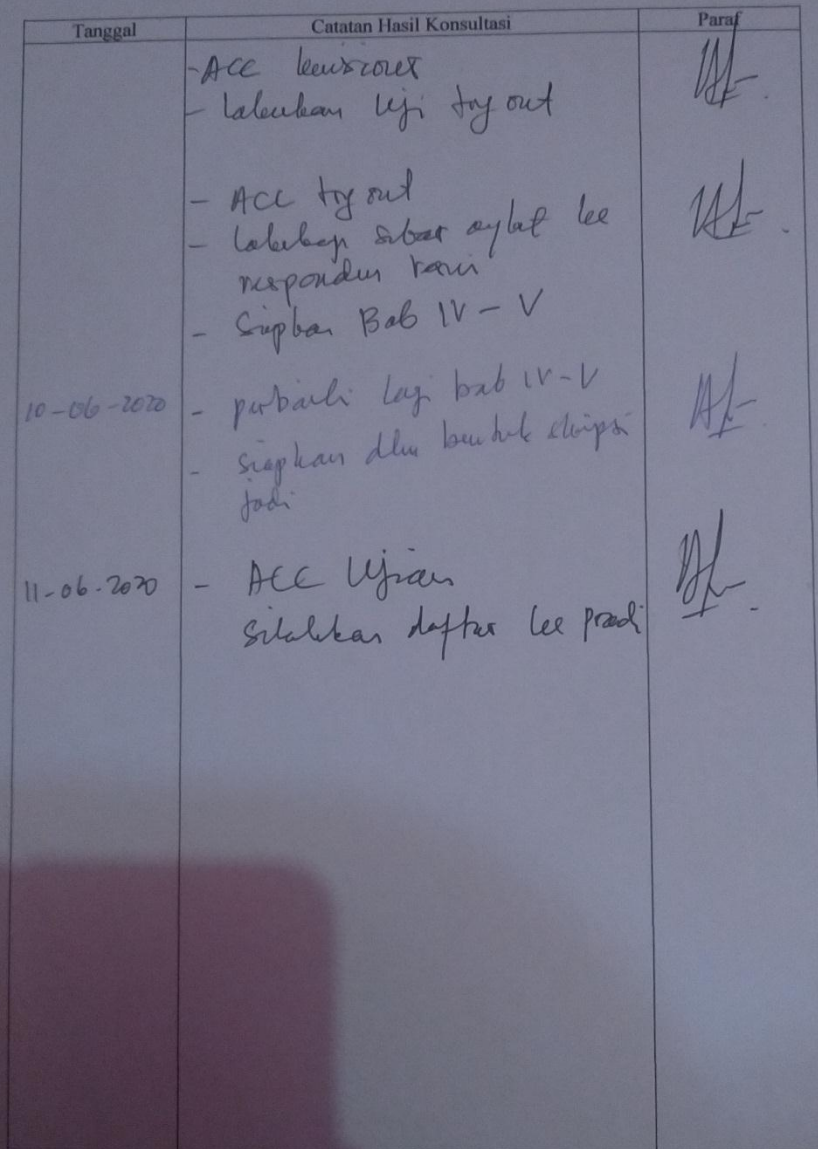 Tanggal Catatan Hasil Konsultasi Paraf
- ACC kuisioner
- Lakukan Uji try out
- ACC try out
- Lakukan sebar angket ke
responden
- Siapkan Bab IV - V
10-06-2020 - perbaiki lagi bab IV - V
- siapkan dlm bentuk skripsi
jadi
11-06-2020 - ACC Ujian
Silahkan daftar ke prodi